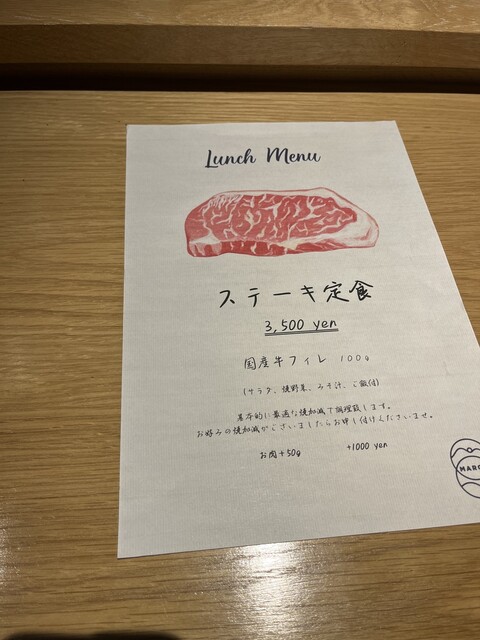 Lunch Menu
ステーキ定食
3,500 yen
国産牛フィレ 100g
(サラダ、焼野菜、みそ汁、ご飯付)
基本的に最適な焼加減で調理致します。
お好みの焼加減がございましたらお申し付けくださいませ。
お肉+50g +1000 yen